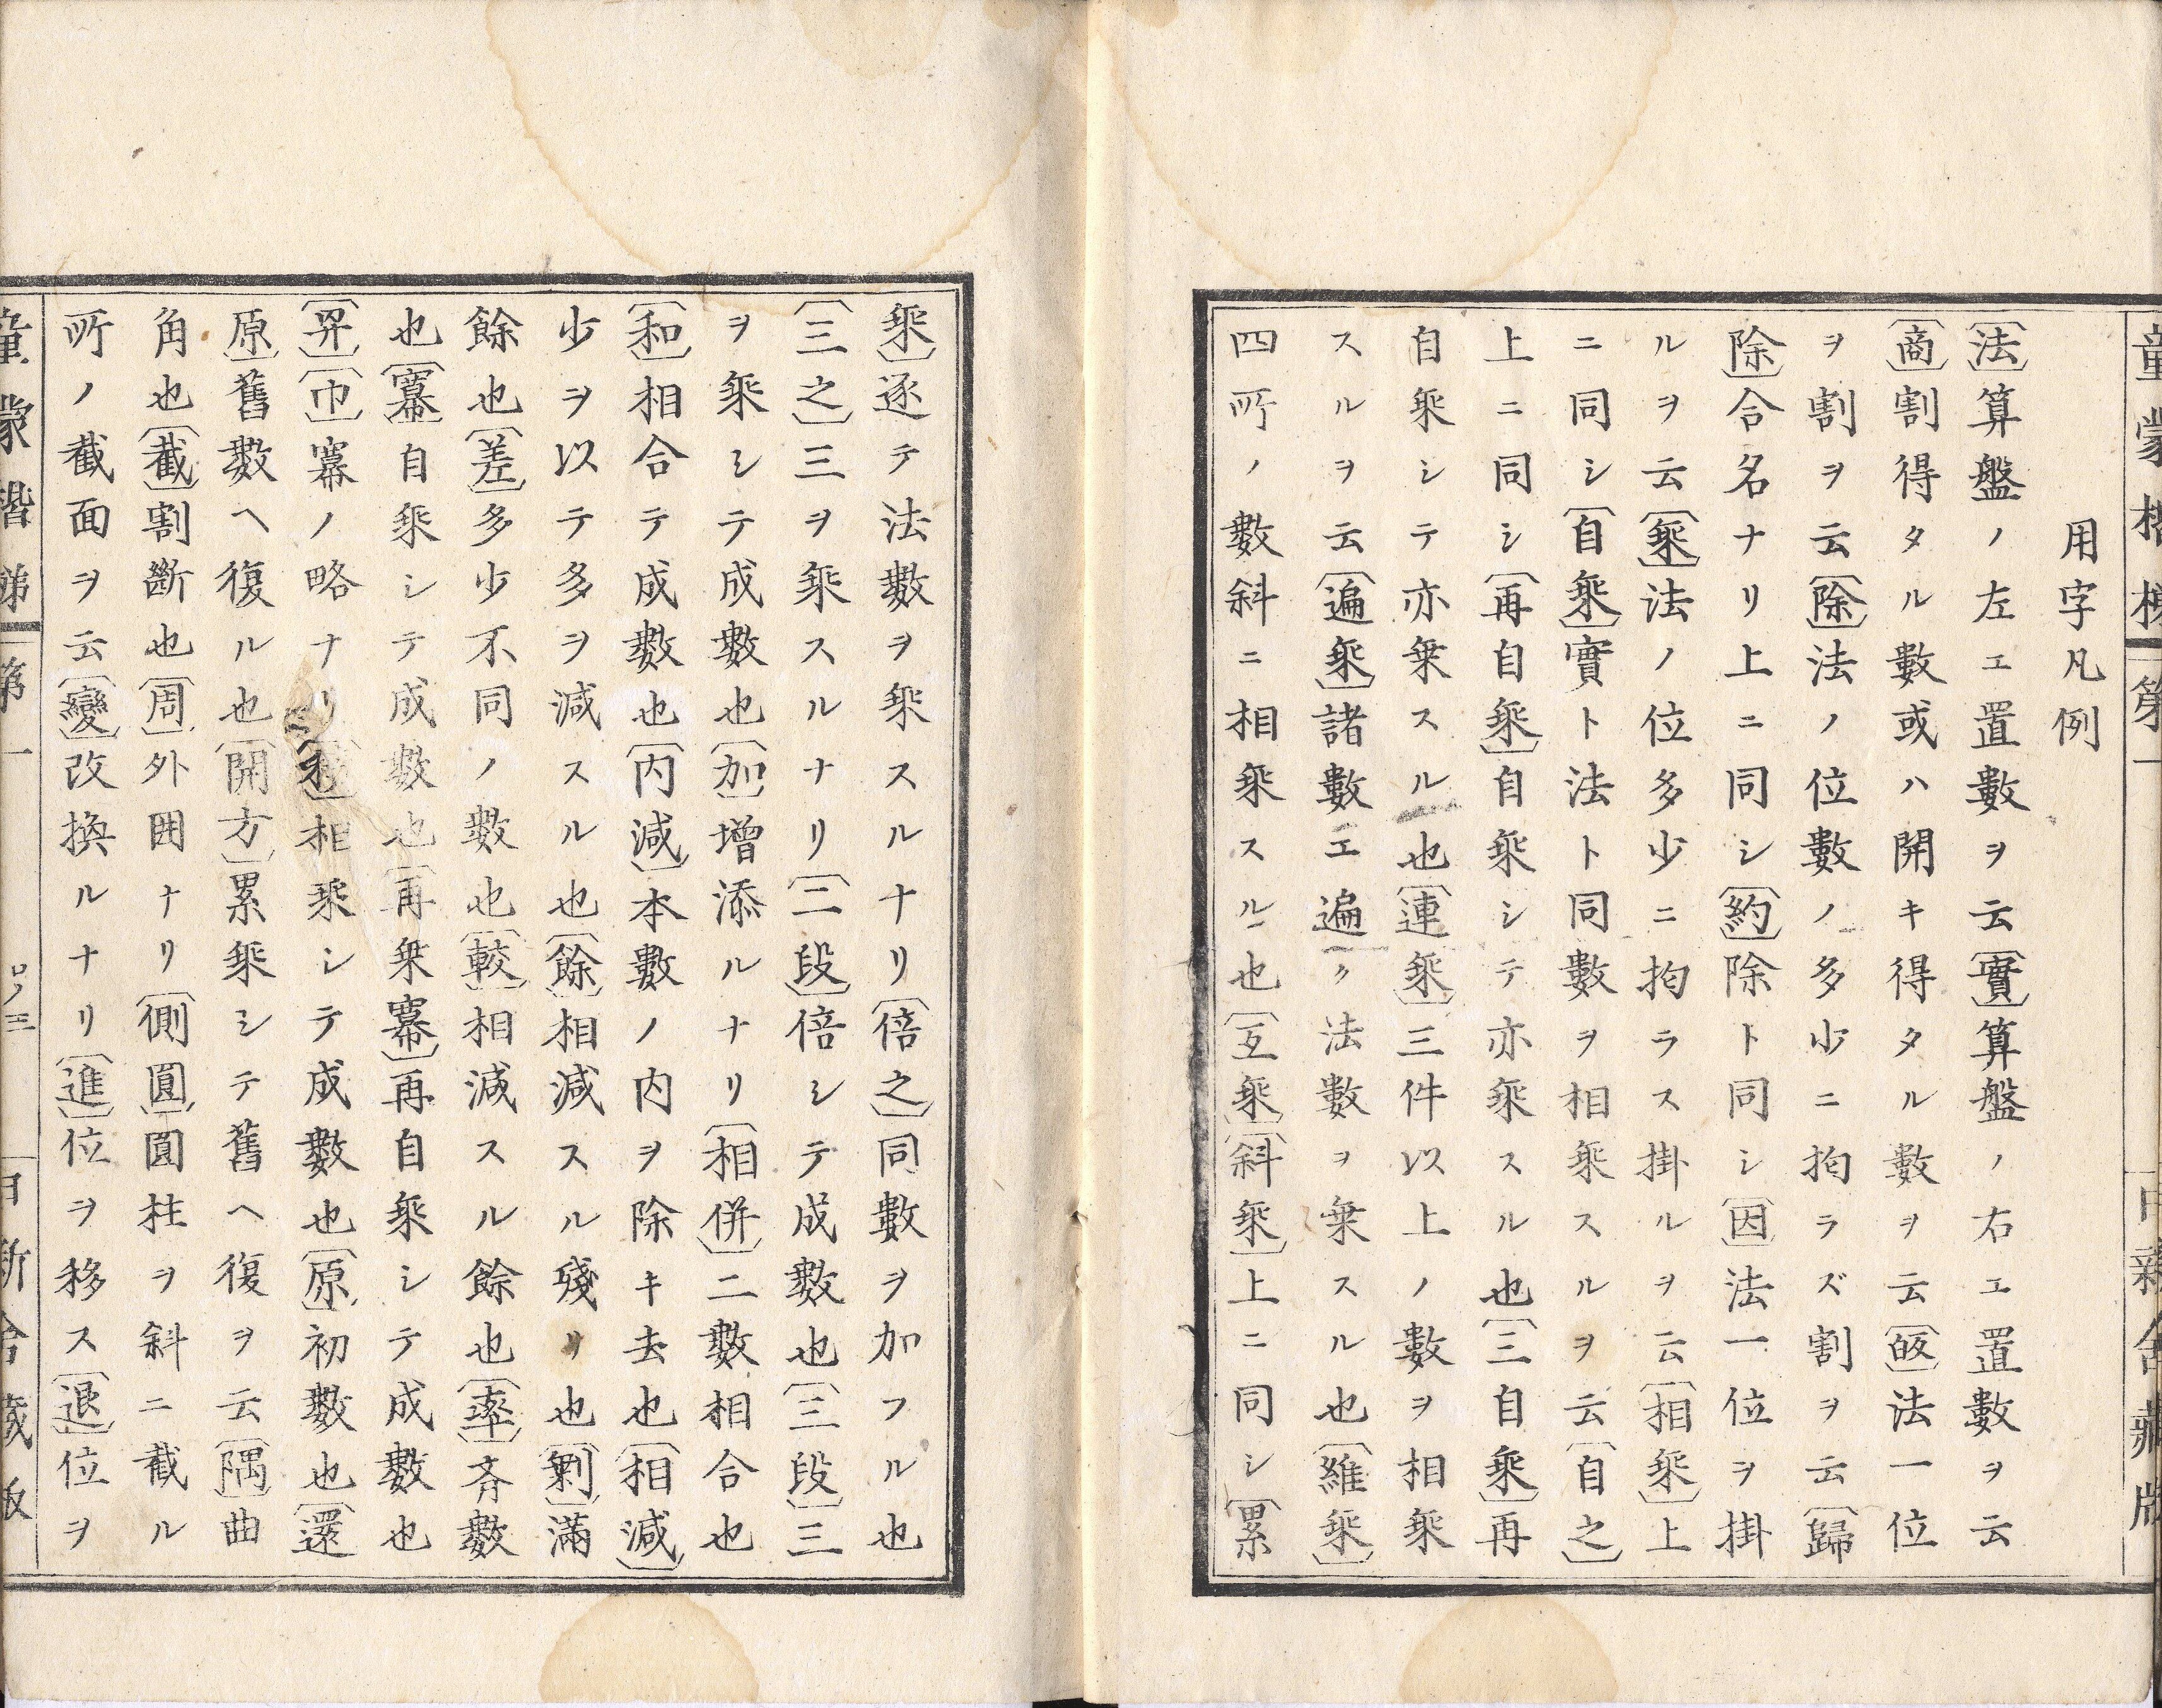 用字凡例
〔法〕算盤ノ左エ置數ヲ云〔實〕算盤ノ右エ置數ヲ云
〔商〕割得タル數或ハ開キ得タル數ヲ云〔皈〕法一位
ヲ割ヲ云〔除〕法ノ位數ノ多少ニ拘ラズ割ヲ云〔歸
除〕合名ナリ上ニ同シ〔約〕除ト同シ〔因〕法一位ヲ掛
ルヲ云〔乘〕法ノ位多少ニ拘ラス掛ルヲ云〔相乘〕上
ニ同シ〔自乘〕實ト法ト同數ヲ相乘スルヲ云〔自之〕
上ニ同シ〔再自乘〕自乘シテ亦乘スル也〔三自乘〕再
自乘シテ亦乗スル也〔連乘〕三件以上ノ數ヲ相乘
スルヲ云〔遍乘〕諸數エ遍ク法數ヲ乗スル也〔維乘〕
四所ノ數斜ニ相乘スル也〔互乘〕〔斜乘〕上ニ同シ〔累
乘〕逐テ法數ヲ乘スルナリ〔倍之〕同數ヲ加フル也
〔三之〕三ヲ乘スルナリ〔二段〕倍シテ成數也〔三段〕三
ヲ乘シテ成數也〔加〕增添ルナリ〔相併〕二數相合也
〔和〕相合テ成數也〔内減〕本數ノ内ヲ除キ去也〔相減〕
少ヲ以テ多ヲ減スル也〔餘〕相減スル殘リ也〔剰〕滿
餘也〔差〕多少不同ノ數也〔較〕相減スル餘也〔率〕斉數
也〔冪〕自乘シテ成數也〔再乗冪〕再自乘シテ成數也
〔羃〕〔巾〕冪ノ略ナリ相乘シテ成數也〔原〕初數也〔還
原〕舊數ヘ復ル也〔開方〕累乘シテ舊ヘ復ヲ云〔隅〕曲
角也〔截〕割斷也〔周〕外囲ナリ〔側圓〕圓柱ヲ斜ニ截ル
所ノ截面ヲ云〔變〕改換ルナリ〔進〕位ヲ移ス〔退〕位ヲ
童蒙楷梯 第一 口ノ三 日新舍藏版